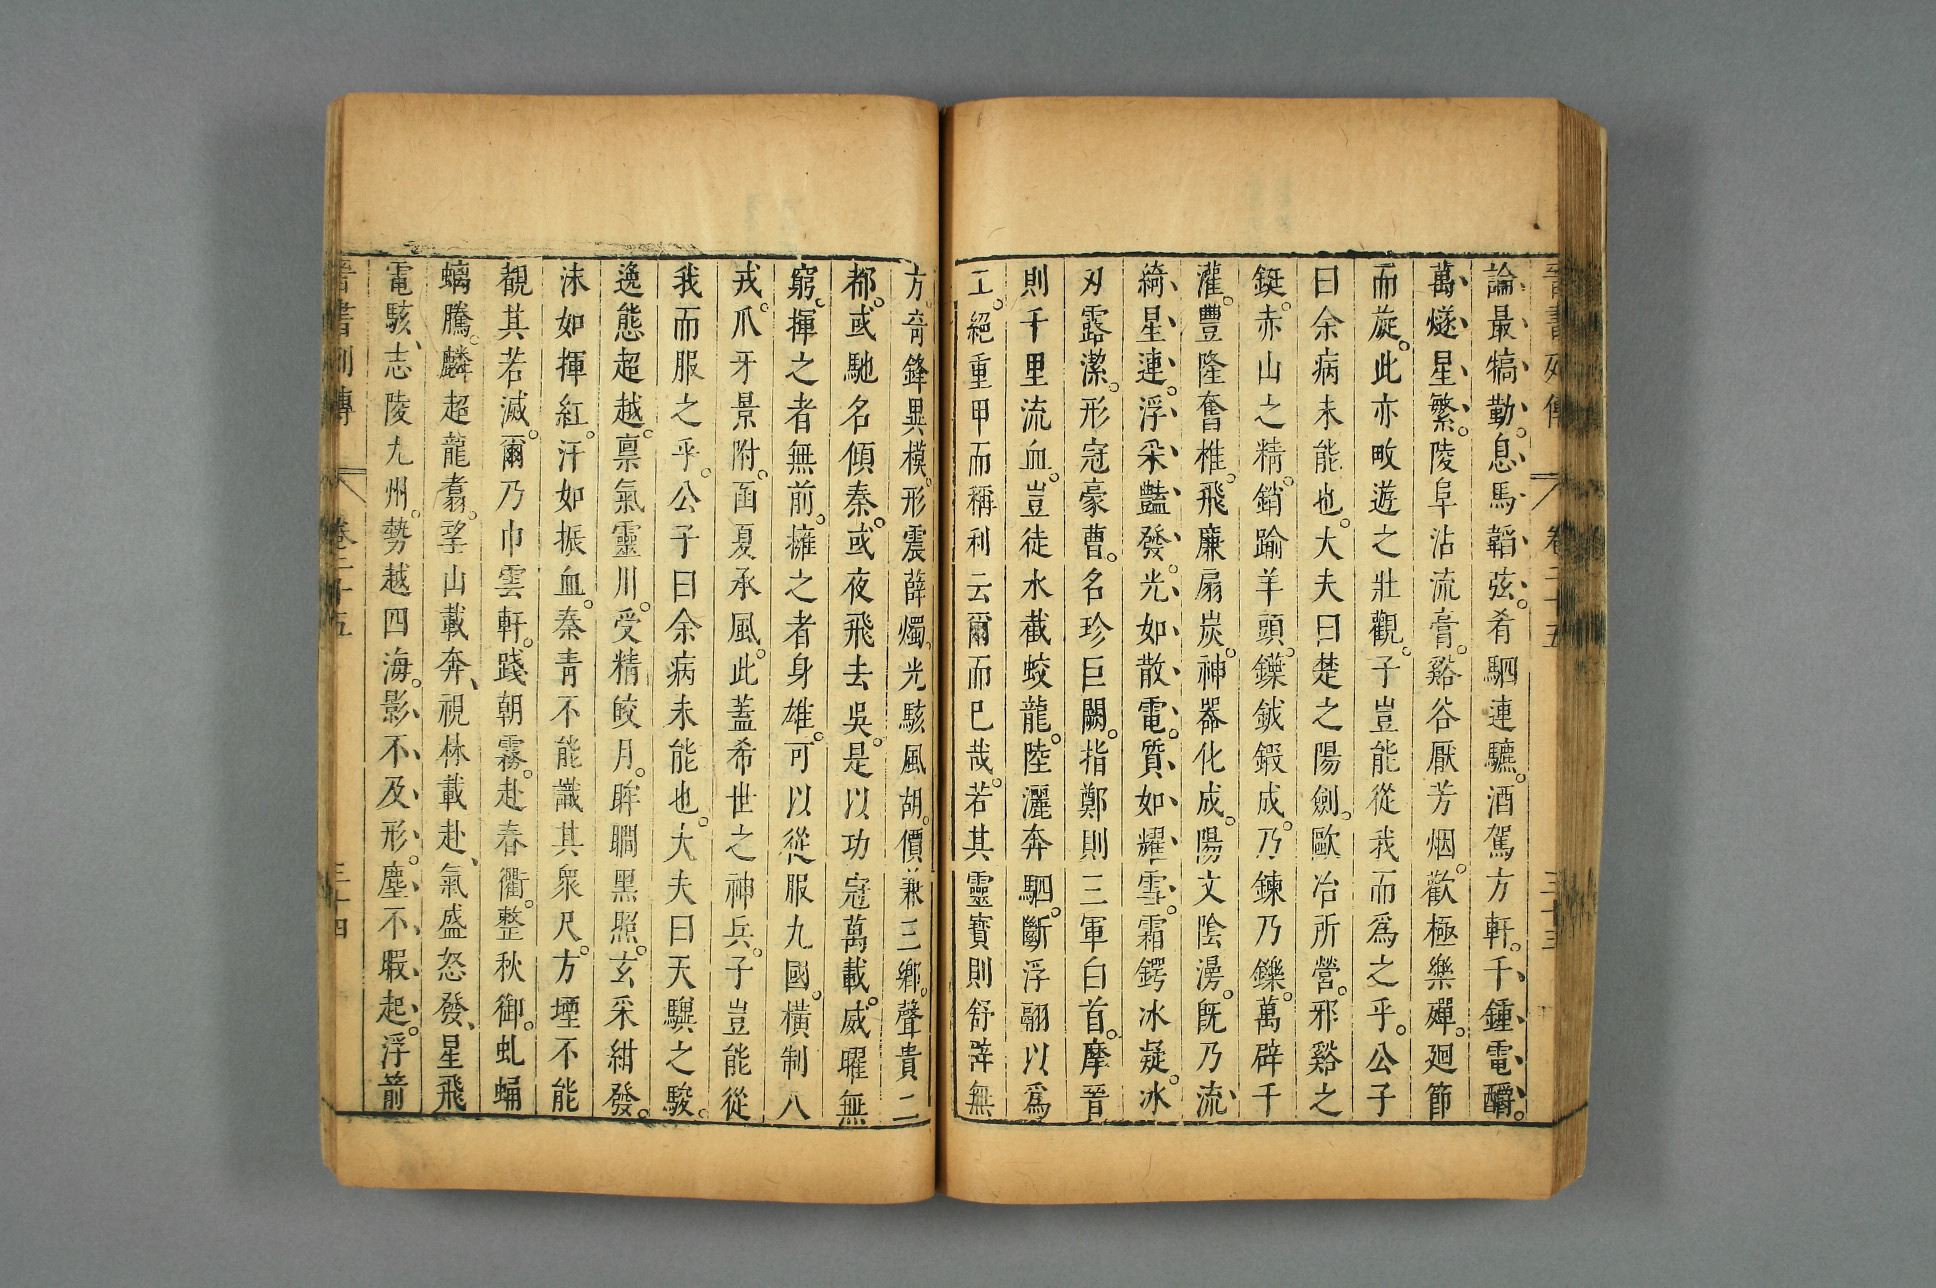 晉書列傳 卷二十五 三十三
論、最、犒、勤。息、馬、韜、弦。肴駟連驪。酒駕方軒。千、鍾、電、釂。
萬、燧、星、繁。陵阜沾流膏。谿谷厭芳烟。歡極樂殫。迴節
而旋。此亦畋遊之壯觀。子豈能從我而爲之乎。公子
曰余病未能也。大夫曰楚之陽劍。歐冶所營。邪谿之
鋌。赤山之精。銷踰羊頭。鏷鉞鍜成。乃鍊乃鑠。萬辟千
灌。豐隆奮椎。飛廉扇炭。神器化成。陽文陰漫。旣乃流、
綺、星、連。浮、采、豔、發。光、如、散、電。質、如、耀、雪。霜鍔冰凝。冰
刃露潔。形冠豪曹。名珍巨闕。指鄭則三軍白首。摩晉
則千里流血。豈徒水截蛟龍。陸灑奔駟。斷浮翮以爲
工。絕重甲而稱利云爾而已哉。若其靈寶則舒辟無
方。奇鋒異模。形震薛燭。光駭風胡。價兼三鄉。聲貴二
都。或馳名傾秦。或夜飛去吳。是以功冠萬載。威曜無
窮。揮之者無前。擁之者身雄。可以從服九國。橫制八
戎。爪牙景附。函夏承風。此蓋希世之神兵。子豈能從
我而服之乎。公子曰余病未能也。大夫曰天驥之駿。
逸態超越。禀氣靈川。受精皎月。眸瞷黑照。玄采紺發。
沫如揮紅。汗如振血。秦青不能識其衆尺。方堙不能
覩其若滅。爾乃巾雲軒。踐朝霧。赴春衢。整秋御。虬蛹
螭騰。麟超龍翥。望山載奔、視林載赴、氣盛怒發、星飛
電駭、志陵九州。勢越四海。影、不、及、形。塵、不、暇、起。浮箭
晉書列傳 卷二十五 三十四